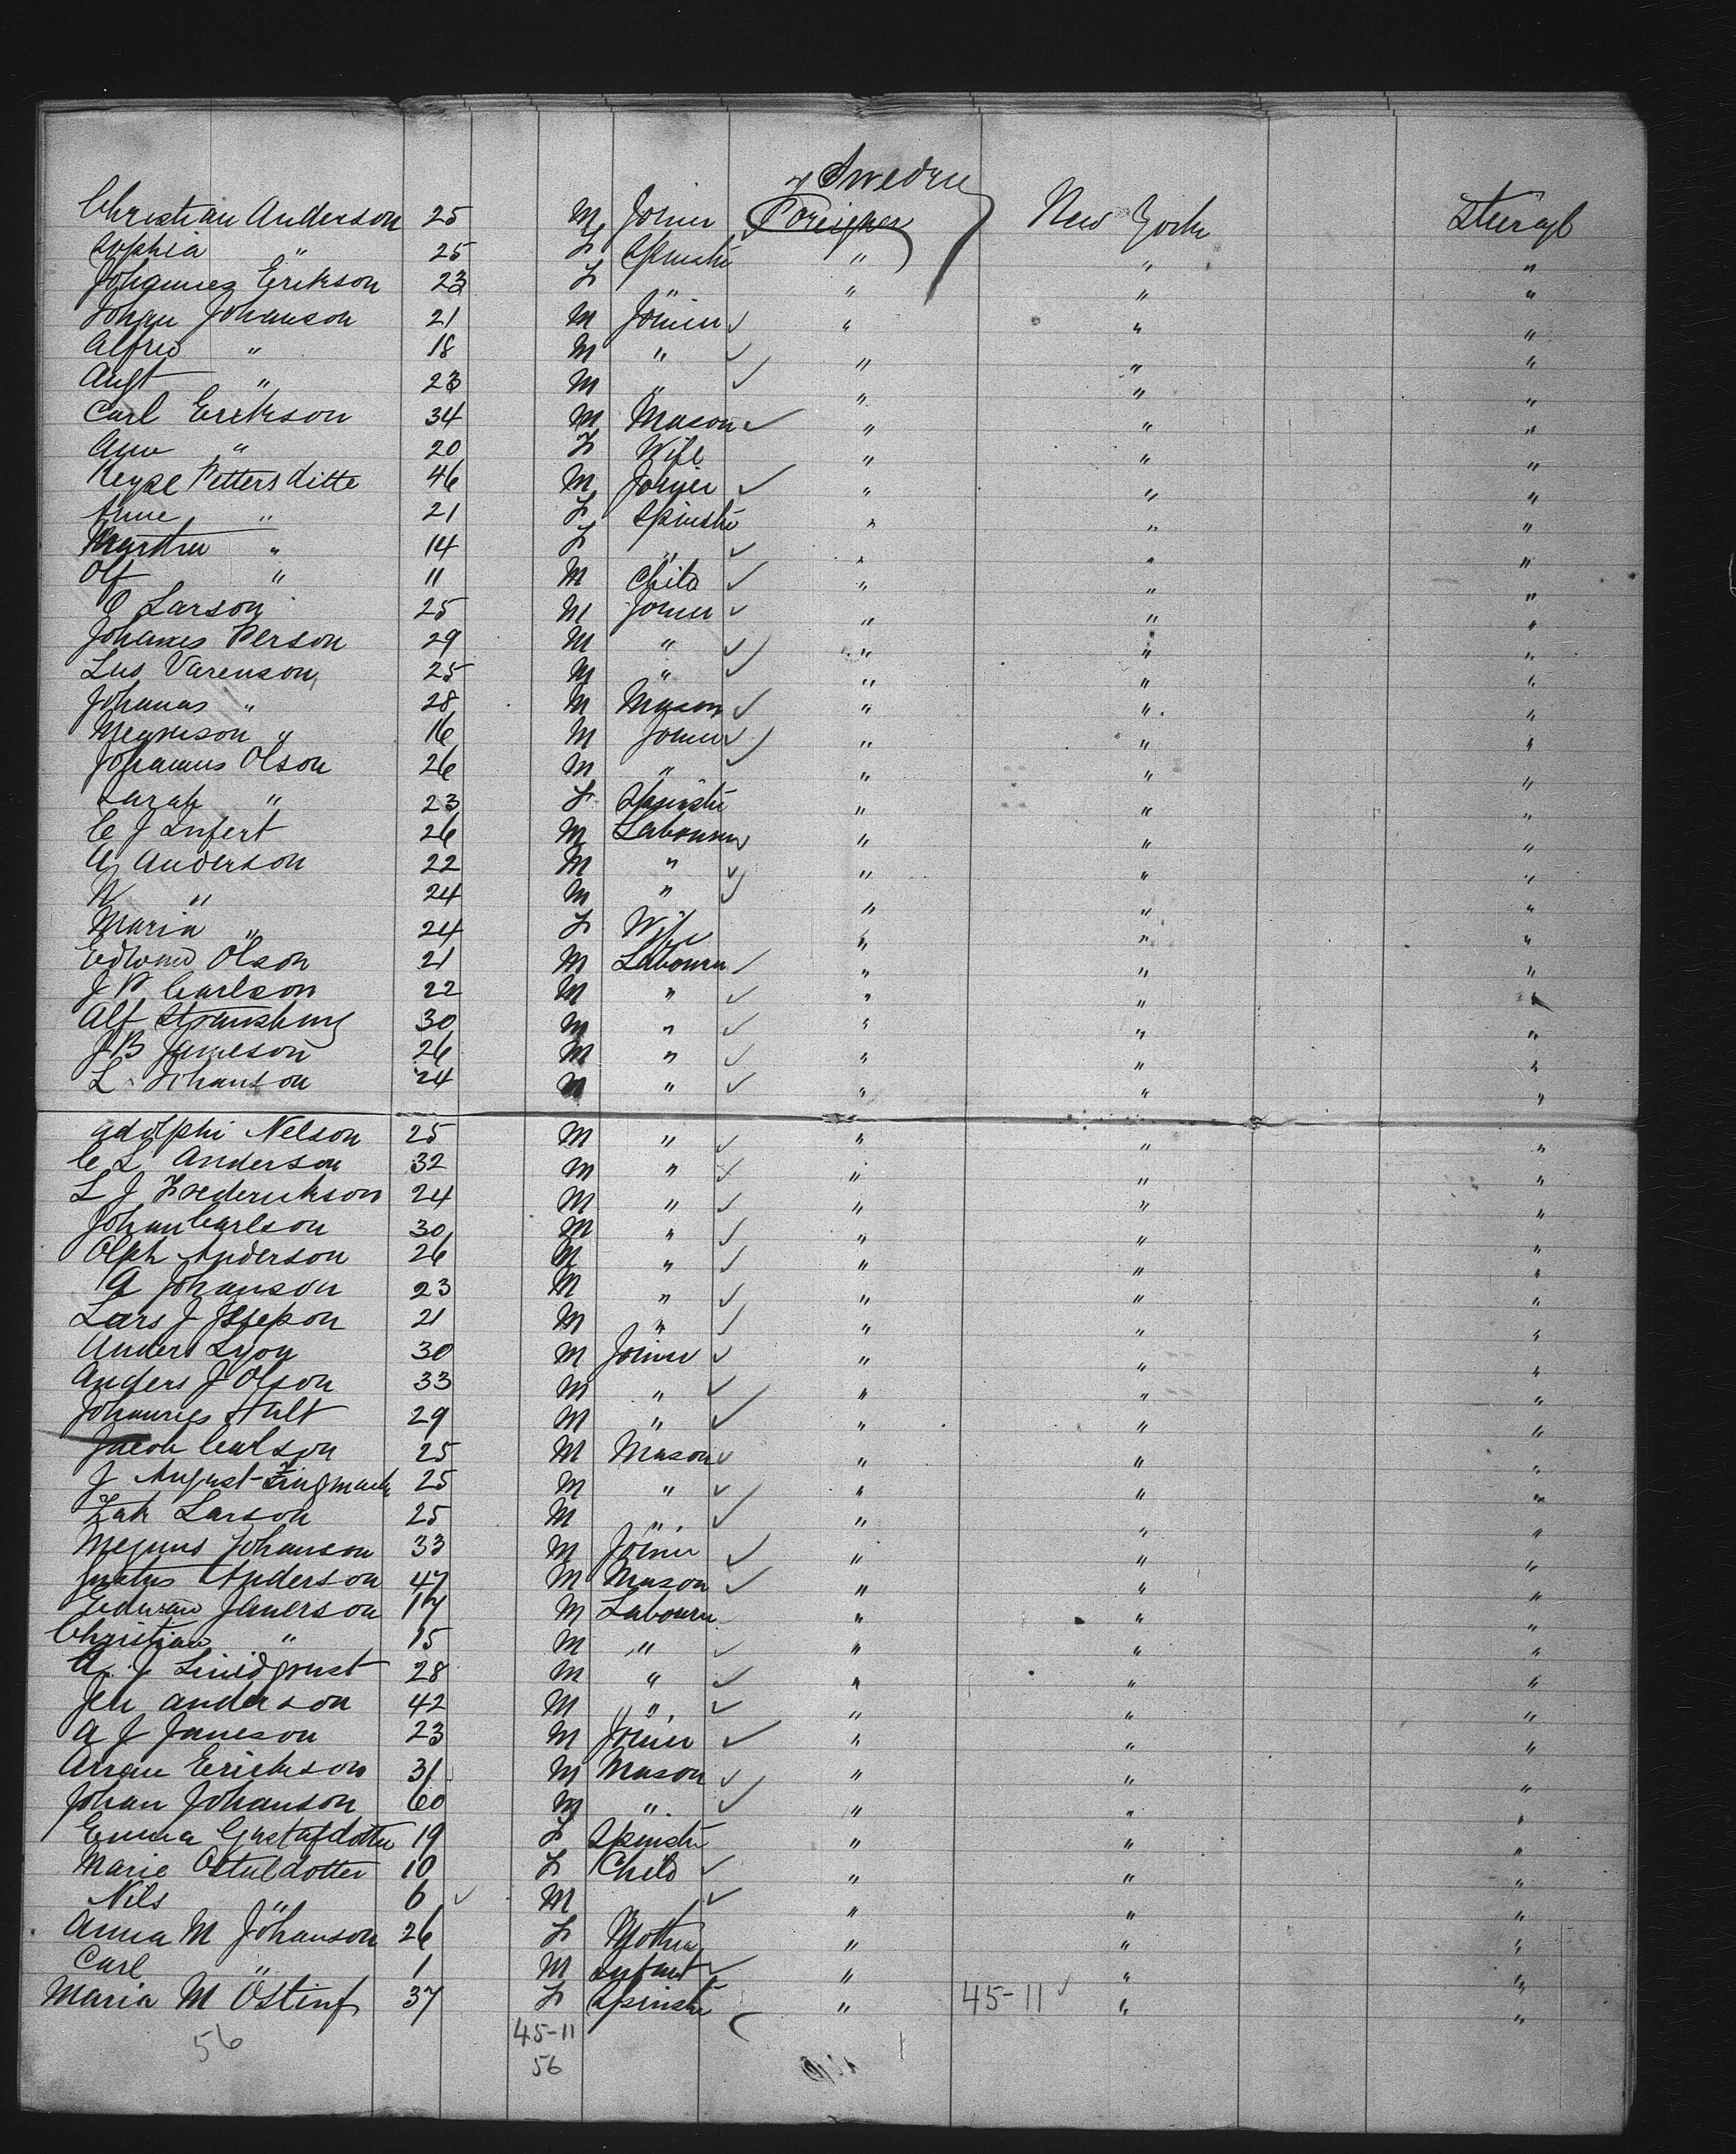 Sweden
Christian Anderson 25 M Joiner Foreigner New York Sterage
Sophia " 25 F Spinster " " "
Johannes Erikson 23 F " " " "
Johan Johanson 21 M Joiner " " "
Alfred " 18 M " " " "
Augt " 23 M " " " "
Carl Erikson 34 M Mason " " "
Ann " 20 F Wife " " "
Petters ditte 46 M Joiner " " "
Anne " 21 F Spinster " " "
Martha " 14 F " " " "
Olf " 11 M Child " " "
O Larson 25 M Joiner " " "
Johanes Person 29 M " " " "
Varenson 25 M " " " "
Johanas " 28 M Mason " " "
" 16 M Joiner " " "
Johannus Olson 26 M " " " "
Sarah " 23 F Spinster " " "
C J 26 M Labourer " " "
A Anderson 22 M " " " "
N " 24 M " " " "
Maria " 24 F Wife " " "
Edward Olson 21 M Labourer " " "
J P Carlson 22 M " " " "
Alf 30 M " " " "
J B Jameson 26 M " " " "
L Johanson 24 M " " " "
Adolphi Nelson 25 M " " " "
C L Anderson 32 M " " " "
L J Frederikson 24 M " " " "
Johan Carlson 30 M " " " "
Olph Anderson 26 M " " " "
A Johanson 23 M " " " "
Lars J 21 M " " " "
Anders Lyon 30 M Joiner " " "
Anders J Olson 33 M " " " "
Johannes Stalt 29 M " " " "
Jacob Carlson 25 M Mason " " "
J August 25 M " " " "
Larson 25 M " " " "
Megnus Johanson 33 M Joiner " " "
Anderson 47 M Mason " " "
Edward Janerson 17 M Labourer " " "
Christian " 15 M " " " "
A J 28 M " " " "
Anderson 42 M " " " "
A J Janeson 23 M Joiner " " "
Erickson 31 M Mason " " "
Johan Johanson 60 M " " " "
Emma Gustafdotter 19 F Spinster " " "
Marie 10 F Child " " "
Nils " 6 M " " " "
Anna M Johanson 26 F Mother " " "
Carl " 1 M Infant " " "
Maria M 37 F Spinster " 45-11 " "
56 45-11
56